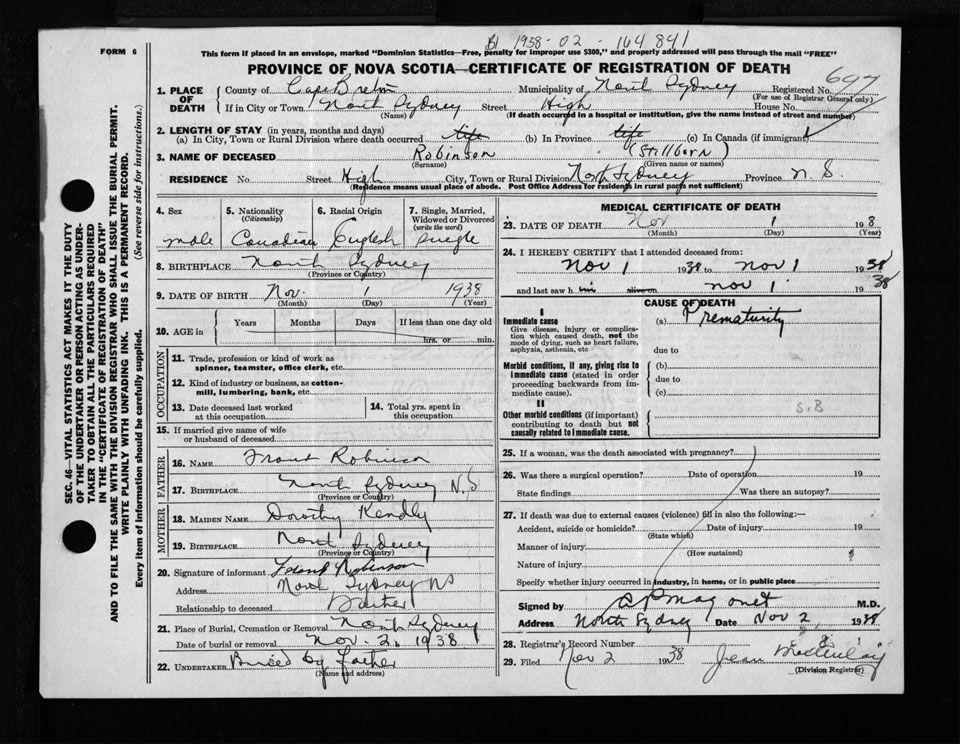 FORM 6
B1 1938-02-164841
This form if placed in an envelope, marked "Dominion Statistics—Free, penalty for improper use $300," and properly addressed will pass through the mail "FREE"
PROVINCE OF NOVA SCOTIA—CERTIFICATE OF REGISTRATION OF DEATH
697
1. PLACE OF DEATH
County of Cape Breton Municipality of North Sydney Registered No.
(For use of Registrar General only)
If in City or Town North Sydney Street High House No.
(Name) (If death occurred in a hospital or institution, give the name instead of street and number)
2. LENGTH OF STAY (in years, months and days)
(a) In City, Town or Rural Division where death occurred life (b) In Province life (c) In Canada (if immigrant)
3. NAME OF DECEASED Robinson (Stillborn)
(Surname) (Given name or names)
RESIDENCE No. Street High City, Town or Rural Division North Sydney Province N.S.
(Residence means usual place of abode. Post Office Address for residents in rural parts not sufficient)
4. Sex 5. Nationality (Citizenship) 6. Racial Origin 7. Single, Married, Widowed or Divorced (write the word)
male Canadian English Single
8. BIRTHPLACE North Sydney
(Province or Country)
9. DATE OF BIRTH Nov. 1 1938
(Month) (Day) (Year)
10. AGE in Years Months Days If less than one day old
hrs. or min.
OCCUPATION
11. Trade, profession or kind of work as spinner, teamster, office clerk, etc.
12. Kind of industry or business, as cotton-mill, lumbering, bank, etc.
13. Date deceased last worked at this occupation
14. Total yrs. spent in this occupation
15. If married give name of wife or husband of deceased
FATHER
16. NAME Frank Robinson
17. BIRTHPLACE North Sydney N.S
(Province or Country)
MOTHER
18. MAIDEN NAME Dorothy Kendly
19. BIRTHPLACE North Sydney
(Province or Country)
20. Signature of informant Robinson
Address North Sydney NS
Relationship to deceased
21. Place of Burial, Cremation or Removal North Sydney
Date of burial or removal Nov. 2. 1938
22. UNDERTAKER Buried by father
(Name and address)
MEDICAL CERTIFICATE OF DEATH
23. DATE OF DEATH Nov 1 1938
(Month) (Day) (Year)
24. I HEREBY CERTIFY that I attended deceased from:
Nov 1 1938 to Nov 1 1938
and last saw h im alive on Nov 1. 1938
CAUSE OF DEATH
I
Immediate cause
Give disease, injury or complication which caused death, not the mode of dying, such as heart failure, asphyxia, asthenia, etc
(a) Prematurity
due to
Morbid conditions, if any, giving rise to immediate cause (stated in order proceeding backwards from immediate cause).
(b)
due to
(c)
II
Other morbid conditions (if important) contributing to death but not causally related to immediate cause.
S.B
25. If a woman, was the death associated with pregnancy?
26. Was there a surgical operation? Date of operation 19
State findings Was there an autopsy?
27. If death was due to external causes (violence) fill in also the following:—
Accident, suicide or homicide? Date of injury 19
(State which)
Manner of injury
(How sustained)
Nature of injury
Specify whether injury occurred in industry, in home, or in public place
Signed by M.D.
Address North Sydney Date Nov 2 1938
28. Registrar's Record Number
29. Filed Nov 2 1938 Jean
(Division Registrar)
SEC. 46—VITAL STATISTICS ACT MAKES IT THE DUTY
OF THE UNDERTAKER OR PERSON ACTING AS UNDER-
TAKER TO OBTAIN ALL THE PARTICULARS REQUIRED
IN THE "CERTIFICATE OF REGISTRATION OF DEATH"
AND TO FILE THE SAME WITH THE DIVISION REGISTRAR WHO SHALL ISSUE THE BURIAL PERMIT.
WRITE PLAINLY WITH UNFADING INK. THIS IS A PERMANENT RECORD.
Every item of information should be carefully supplied. (See reverse side for instructions.)